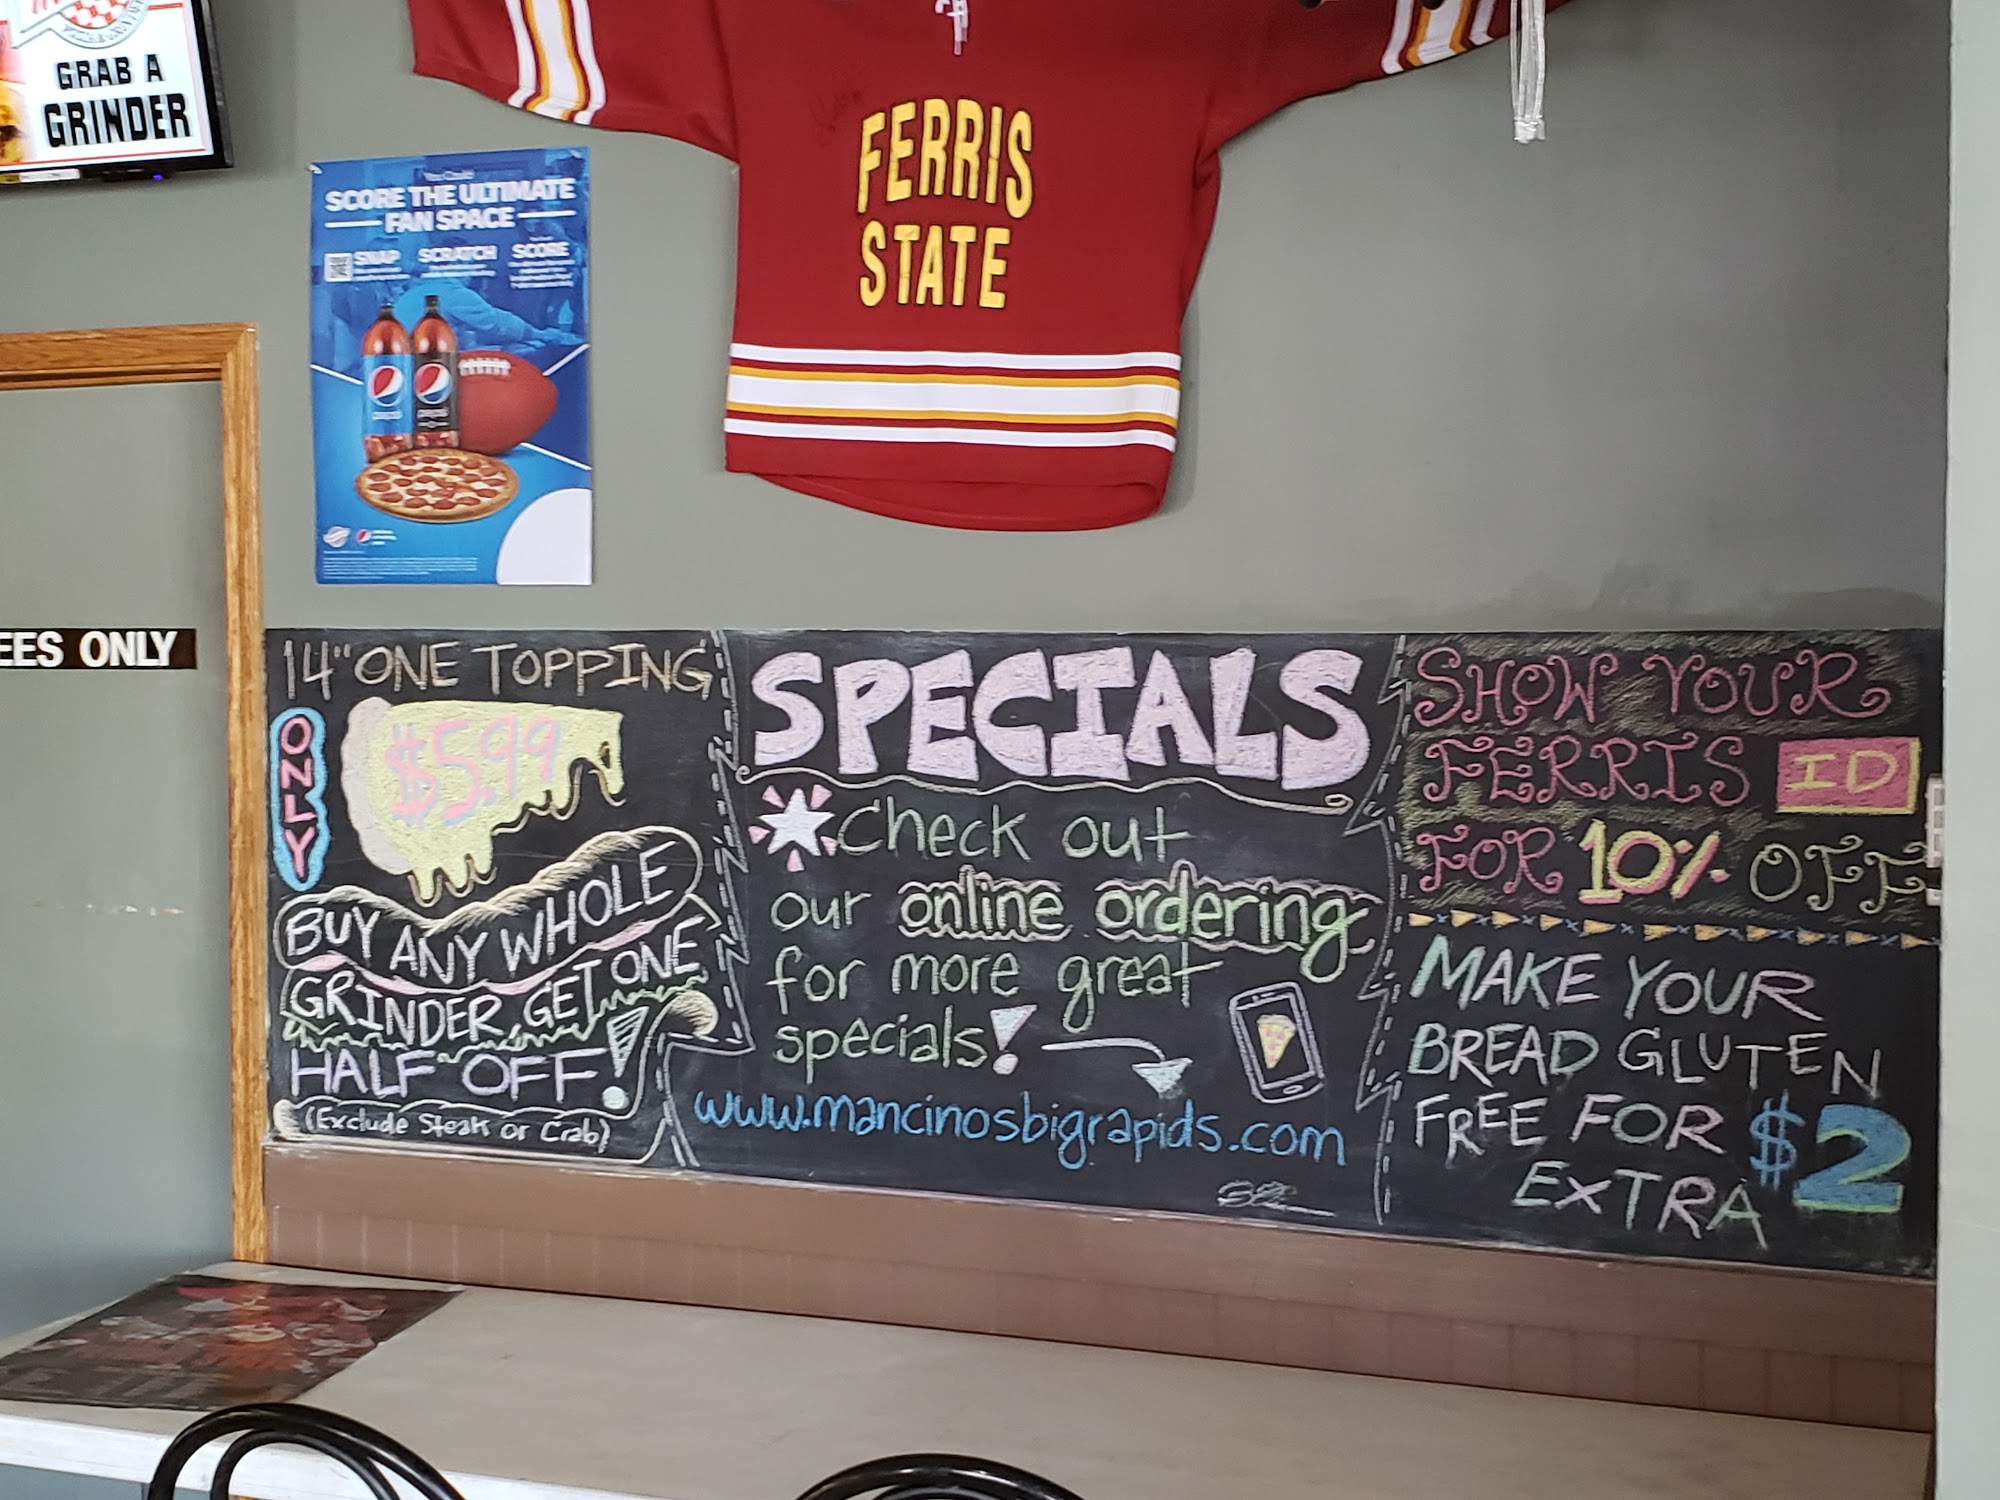 GRAB A
GRINDER
You Could
SCORE THE ULTIMATE
FAN SPACE
SNAP SCRATCH SCORE
pepsi
FERRIS
STATE
EES ONLY
14" ONE TOPPING
ONLY
$5.99
BUY ANY WHOLE
GRINDER GET ONE
HALF OFF!
(Exclude Steak or Crab)
SPECIALS
Check out
our online ordering
for more great
specials!
www.mancinosbigrapids.com
SHOW YOUR
FERRIS ID
FOR 10% OFF
MAKE YOUR
BREAD GLUTEN
FREE FOR $2
EXTRA